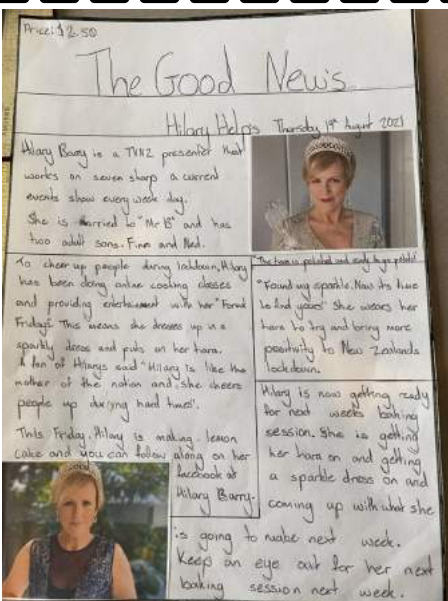 Price: $2.50
The Good News
Hilary Helps Thursday 19th August 2021
Hilary Barry is a TVNZ presenter that
works on seven sharp a current
events show every week day.
She is married to "Mr B" and has
two adult sons. Finn and Ned.
To cheer up people during lockdown, Hilary
has been doing online cooking classes
and providing entertainment with her "Formal
Fridays". This means she dresses up in a
sparkly dress and puts on her tiara.
A fan of Hilarys said "Hilary is like the
mother of the nation and she cheers
people up during hard times".
This Friday, Hilary is making lemon
cake and you can follow along on her
facebook at
Hilary Barry.
"The tiara is polished and ready to go
"Found my sparkle. Now its time
to find yours" She wears her
tiara to try and bring more
positivity to New Zealands
lockdown.
Hilary is now getting ready
for next weeks baking
session. She is getting
her tiara on and getting
a sparkle dress on and
coming up with what she
is going to make next week.
Keep an eye out for her next
baking session next week.